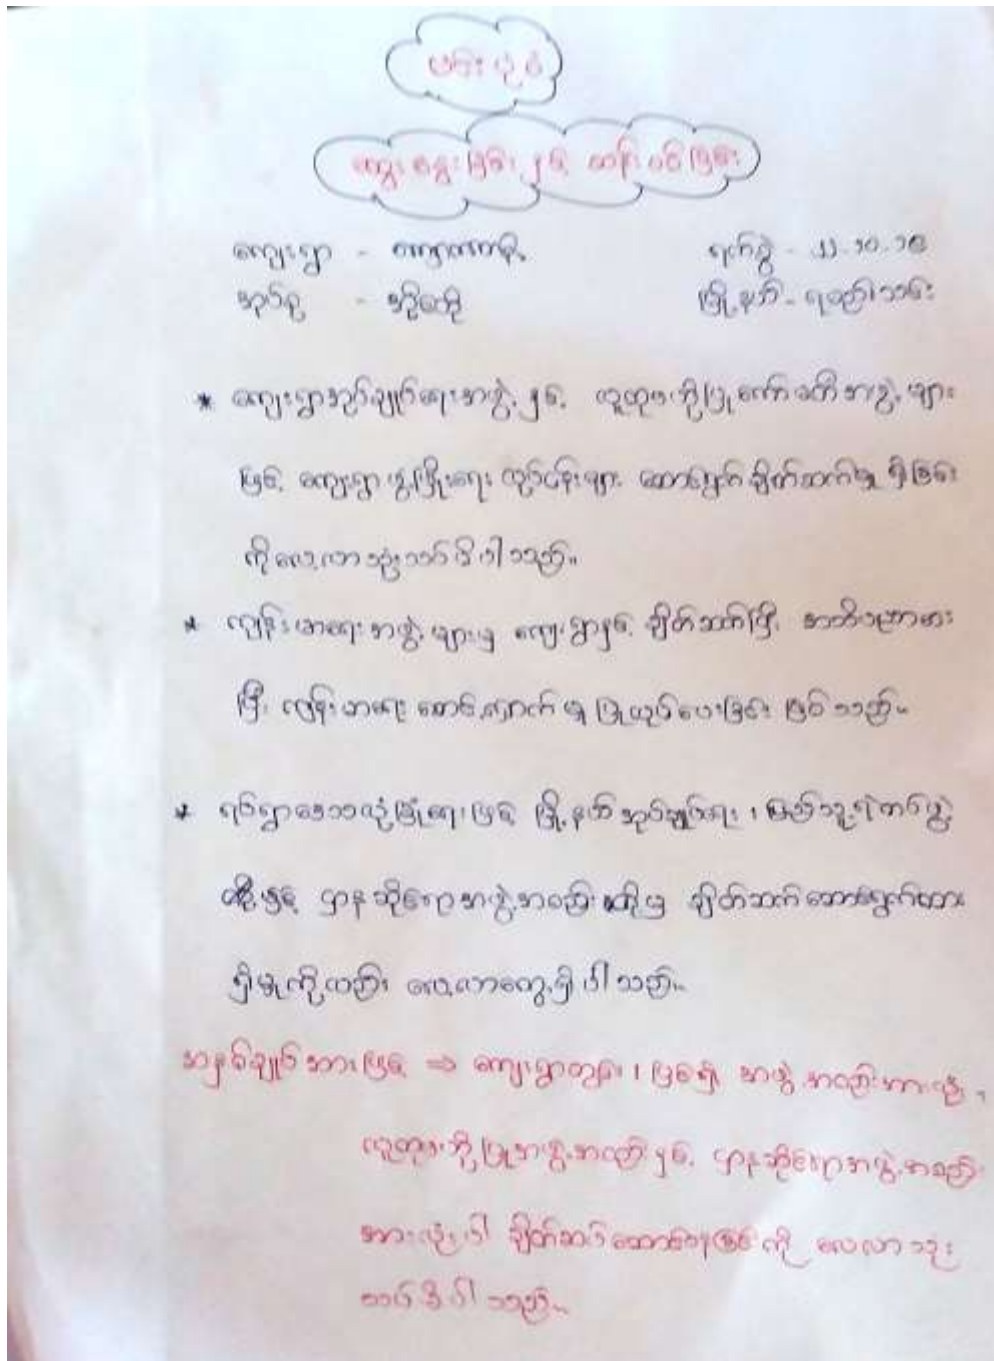 ဗင်းပုံစံ
ဆွေးနွေးခြင်း နှင့် ဆန်းစစ်ခြင်း
ကျေးရွာ - ရက်စွဲ - ၂၂.၁၀.၁၈
အုပ်စု - မြို့နယ် - ရသေ့တောင်
* ကျေးရွာအုပ်ချုပ်ရေးအဖွဲ့ နှင့် လူထုအကျိုးပြုကော်မတီအဖွဲ့များ
ဖြင့် ကျေးရွာဖွံ့ဖြိုးရေး လုပ်ငန်းများ ဆောင်ရွက်ချိတ်ဆက်မှု ရှိခြင်း
ကိုလေ့လာသုံးသပ်မိပါသည်။
* ကျန်းမာရေးအဖွဲ့များမှ ကျေးရွာနှင့် ချိတ်ဆက်ပြီး အသိပညာပေး
ပြီး ကျန်းမာရေး စောင့်ရှောက်မှု ပြုလုပ်ပေးခြင်း ဖြစ်သည်။
* ရပ်ရွာဒေသလုံခြုံရေးဖြင့် မြို့နယ်အုပ်ချုပ်ရေး ၊ ပြည်သူ့ရဲတပ်ဖွဲ့
တို့ဖြင့် ဌာနဆိုင်ရာအဖွဲ့အစည်းတို့မှ ချိတ်ဆက်ဆောင်ရွက်ထား
ရှိမှုကိုလည်း လေ့လာတွေ့ရှိပါသည်။
အနှစ်ချုပ်အားဖြင့် ⇒ ကျေးရွာတွင်း ၊ ပြင်ပရှိ အဖွဲ့အစည်းအားလုံး ၊
လူထုအကျိုးပြုအဖွဲ့အစည်း နှင့် ဌာနဆိုင်ရာအဖွဲ့အစည်း
အားလုံးပါ ချိတ်ဆက်ဆောင်ရွက်ခြင်းကို လေ့လာသုံး
သပ်မိပါသည်။